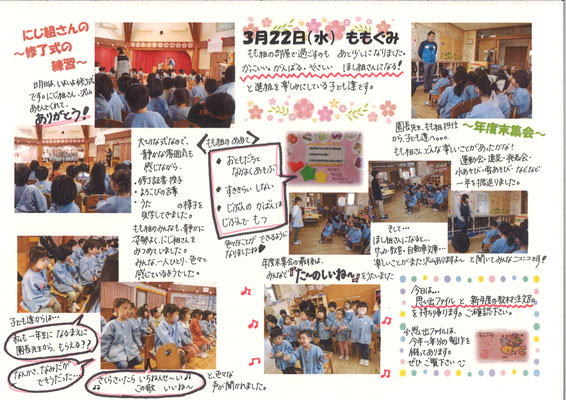 にじ組さんの
～修了式の
練習～
明日は、いよいよ修了式
です。にじ組さん、沢山
あそんでくれて、
ありがとう！
3月22日(水) ももぐみ
もも組の部屋で過ごすのも あと少しになりました。
かっこいい。がんばる。やさしい ほし組さんになる！
と進級を楽しみにしている子ども達です。
大切な式なので、
静かな雰囲気も
感じながら、
・修了証書授与
・よろこびの言葉
・うた の様子を
見学してきました。
もも組のみんなも、静かに
姿勢よく、にじ組さんを
みつめていました。
みんな、一人ひとり、色々と
感じているようでした。
もも組のめあて
・おともだちと
なかよくあそぶ
・すききらい しない
・じぶんの かばんは
じぶんで もつ
色々なことが できるように
なりましたね
園長先生、もも組担任
から、子ども達へ。。。
～年度末集会～
もも組さん どんな楽しいことがあったかな？
運動会・遠足・発表会・
水あそび・雪あそび・などなど
一年を振返りました。
そして…
ほし組さんになると…
サッカー教室・自動車文庫…
楽しいことがまだ沢山ありますよ～ と聞いてみんなニコニコです！
年度末集会の最後は、
みんなで『たーのしいねっ。』をうたいました
子ども達からは…
私も一年生になるまえに
園長先生から、もらえる？？
なんかさ、なみだが
でそうだった…
さくらさいたら いちねんせーい
この歌 いいね～
と、色々な
声が聞かれました。
今日は…
思い出ファイル と 新年度の教材注文袋
を持ち帰ります。ご確認下さい。
思い出ファイルは、
今年一年分の製作を
綴ってあります。
ぜひ ご覧下さい